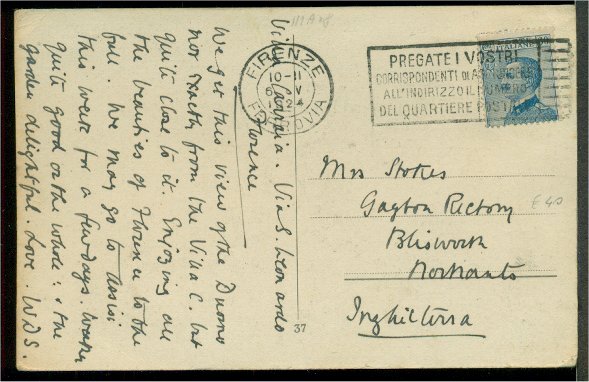 Villa C. Via S. Leonardo
Florence
We get this view of the Duomo
not exactly from the Villa C. but
quite close to it. Enjoying all
the beauties of Florence to the
full. We may go to Assisi
this week for a few days. Weather
quite good on the whole: & the
garden delightful. Love W.D.S.
FIRENZE
10-11
FERROVIA
PREGATE I VOSTRI
CORRISPONDENTI DI AGGIUNGERE
ALL'INDIRIZZO IL NUMERO
DEL QUARTIERE POSTALE
Mrs Stokes
Gayton Rectory
Blisworth
Northants
Inghilterra
£40
37